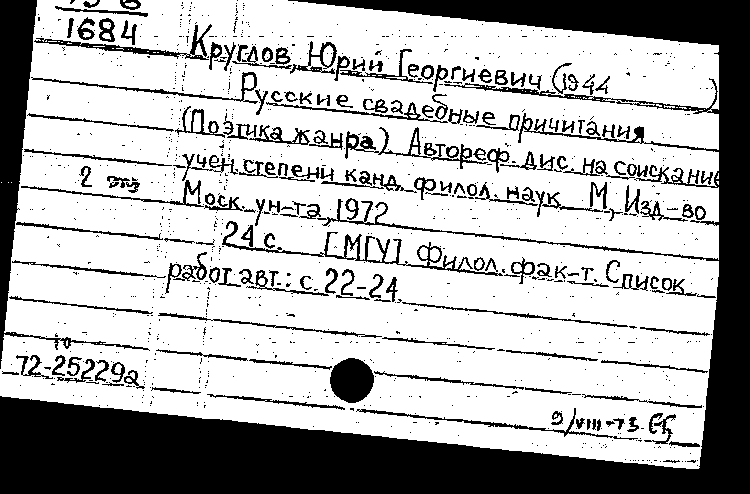 1684
Круглов, Юрий Георгиевич (1944 )
Русские свадебные причитания
(Поэтика жанра) Автореф. дис. на соискание
учен. степени канд. филол. наук М, Изд-во
2
Моск. ун-та, 1972
24 с. [МГУ]. Филол. фак-т. Список
работ авт.: с. 22-24
72-25229а
9/VIII-73